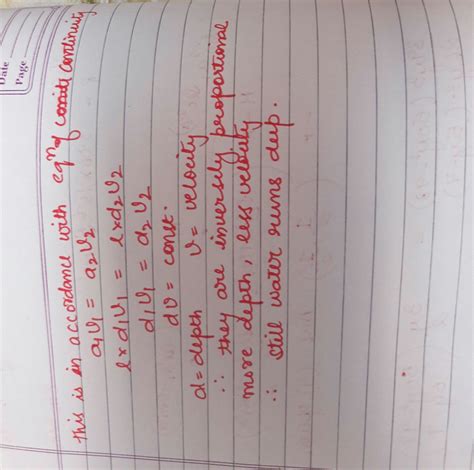 Date
Page
this is in accordance with eqⁿ of continuity
a₁v₁ = a₂v₂
l×d₁v₁ = l×d₂v₂
d₁v₁ = d₂v₂
dv = const.
d=depth v= velocity
∴ they are inversily peroportional
more depth, less velocity
∴ still water runs deep.